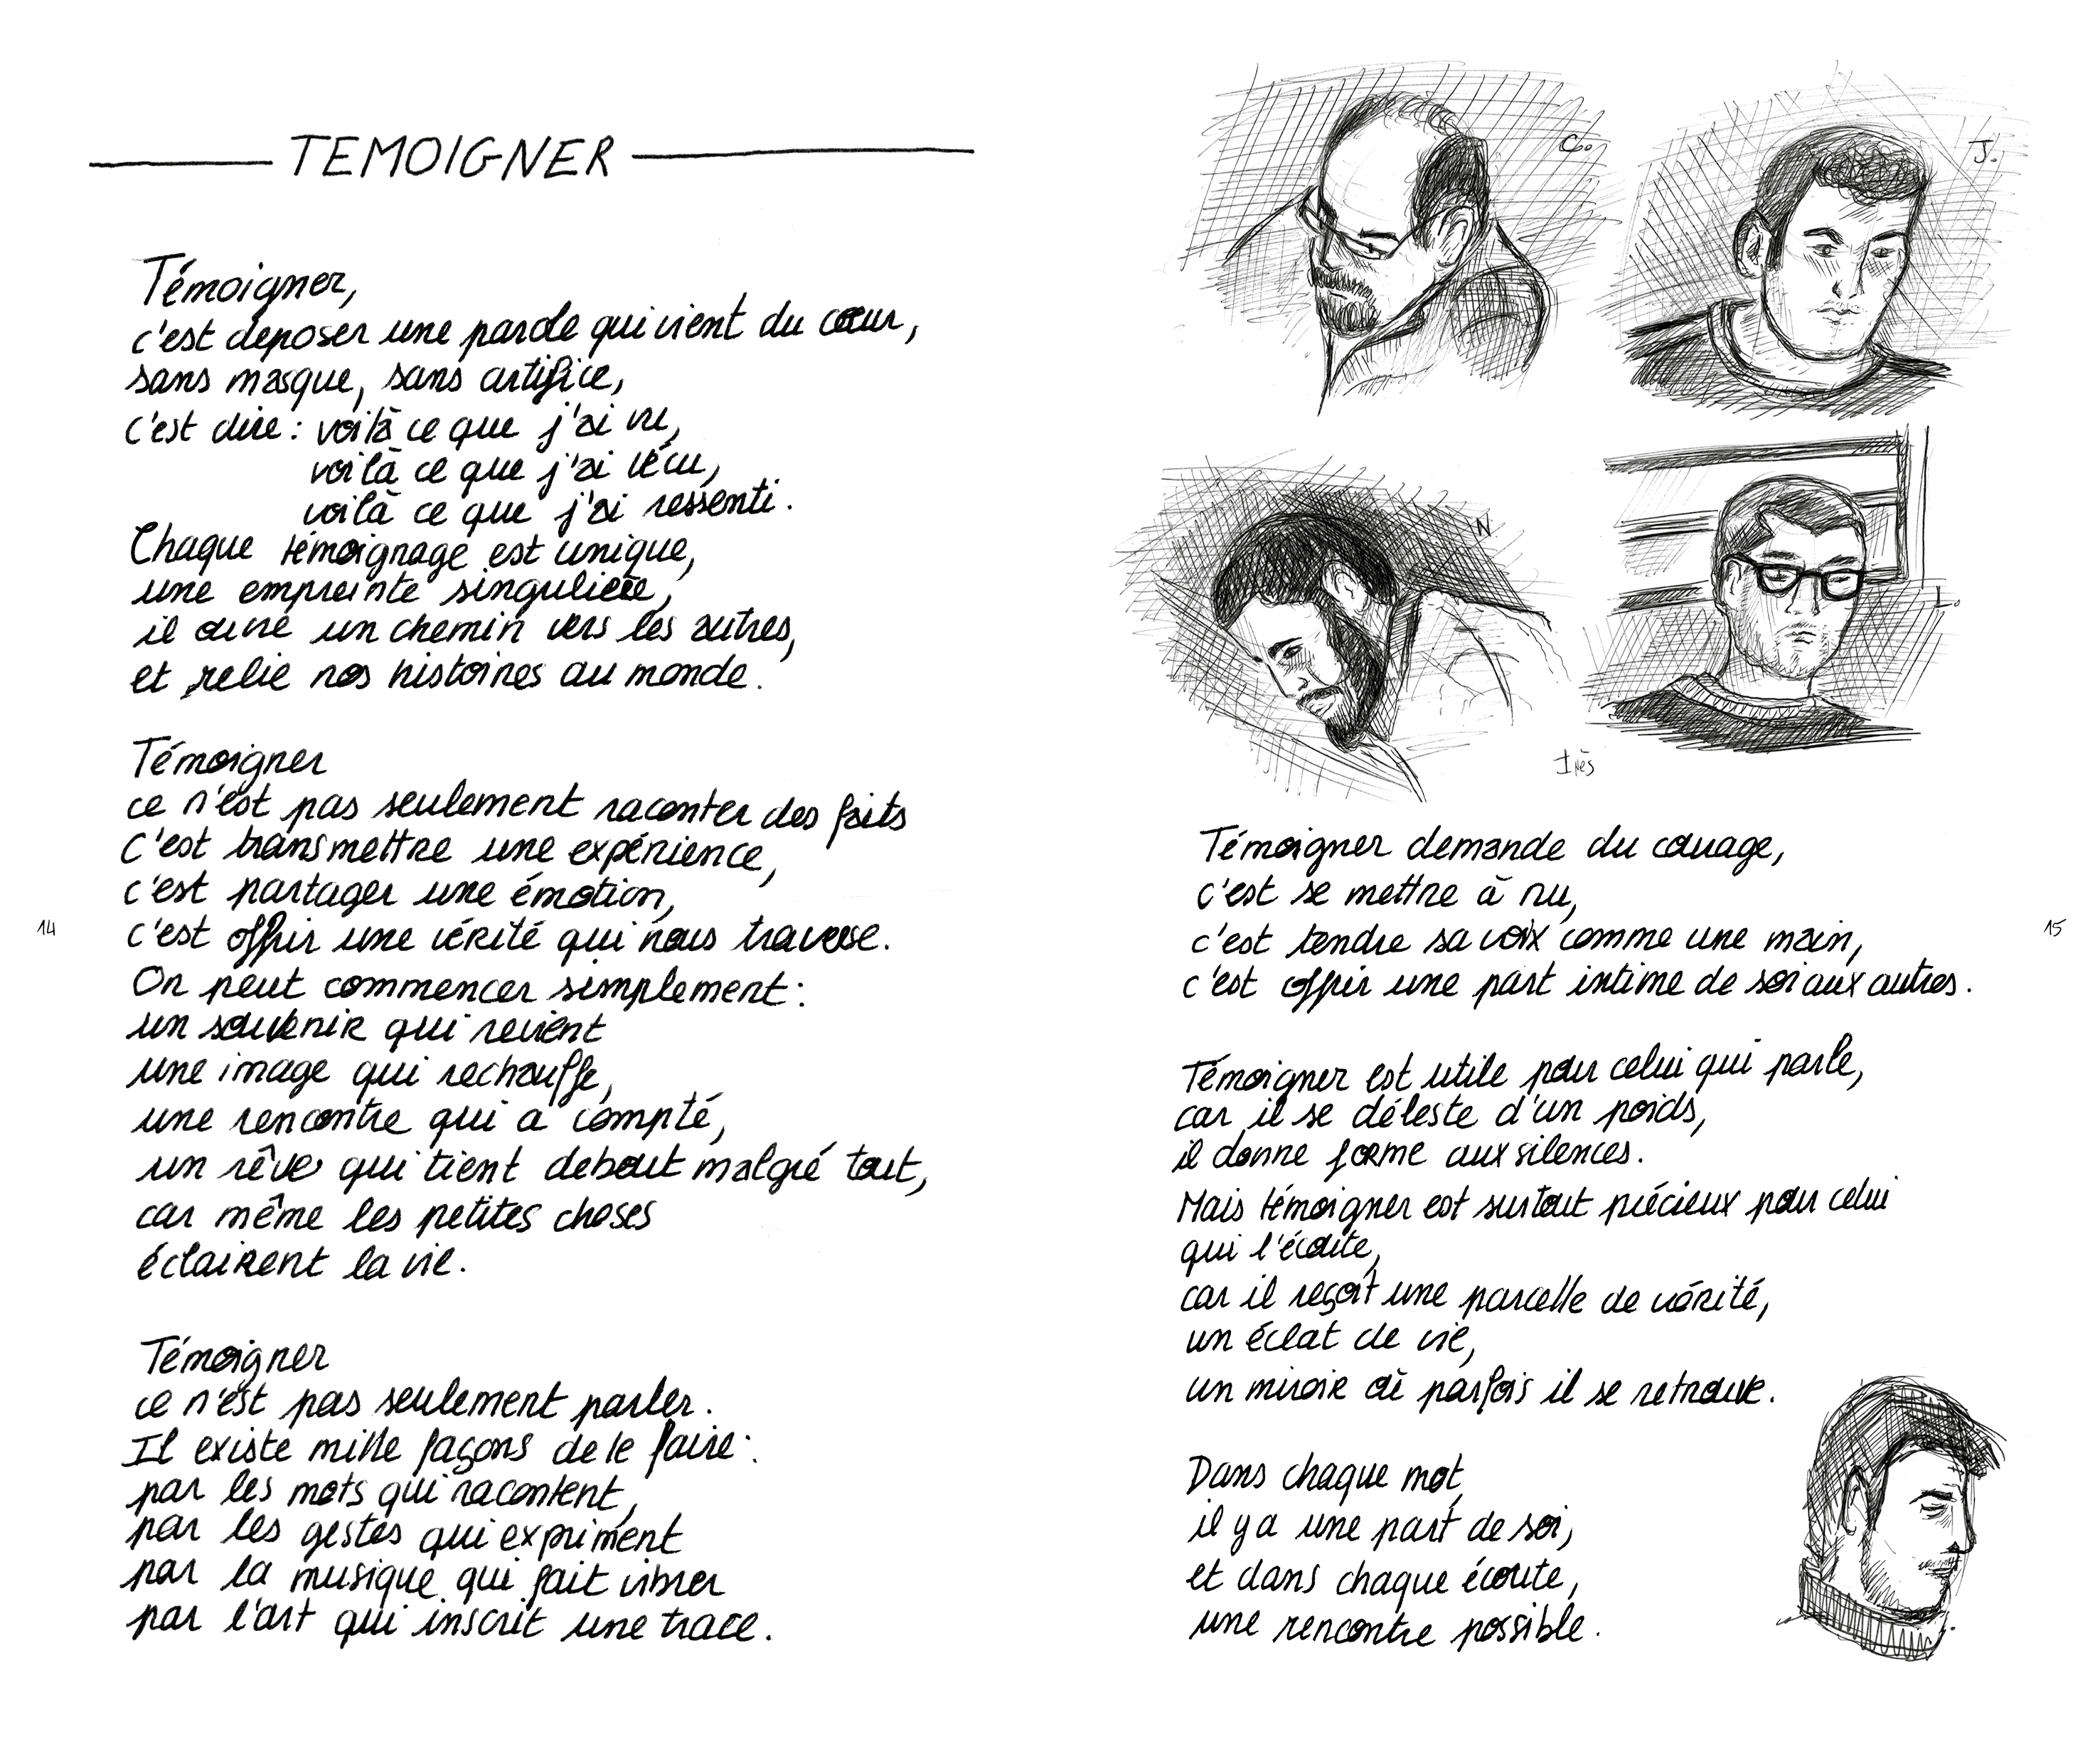 TEMOIGNER
Témoigner,
c'est déposer une parole qui vient du cœur,
sans masque, sans artifice,
c'est dire : voilà ce que j'ai vu,
voilà ce que j'ai vécu,
voilà ce que j'ai ressenti.
Chaque témoignage est unique,
une empreinte singulière,
il ouvre un chemin vers les autres,
et relie nos histoires au monde.
Témoigner
ce n'est pas seulement raconter des faits
c'est transmettre une expérience,
c'est partager une émotion,
c'est offrir une vérité qui nous traverse.
On peut commencer simplement :
un souvenir qui revient
une image qui rechauffe,
une rencontre qui a compté,
un rêve qui tient debout malgré tout,
car même les petites choses
éclairent la vie.
Témoigner
ce n'est pas seulement parler.
Il existe mille façons de le faire :
par les mots qui racontent,
par les gestes qui expriment
par la musique qui fait vibrer
par l'art qui inscrit une trace.
14
Co.
J.
N
L.
Inès
Témoigner demande du courage,
c'est se mettre à nu,
c'est tendre sa voix comme une main,
c'est offrir une part intime de soi aux autres.
Témoigner est utile pour celui qui parle,
car il se déleste d'un poids,
il donne forme aux silences.
Mais témoigner est surtout précieux pour celui
qui l'écoute,
car il reçoit une parcelle de vérité,
un éclat de vie,
un miroir où parfois il se retrouve.
Dans chaque mot,
il y a une part de soi,
et dans chaque écoute,
une rencontre possible.
15